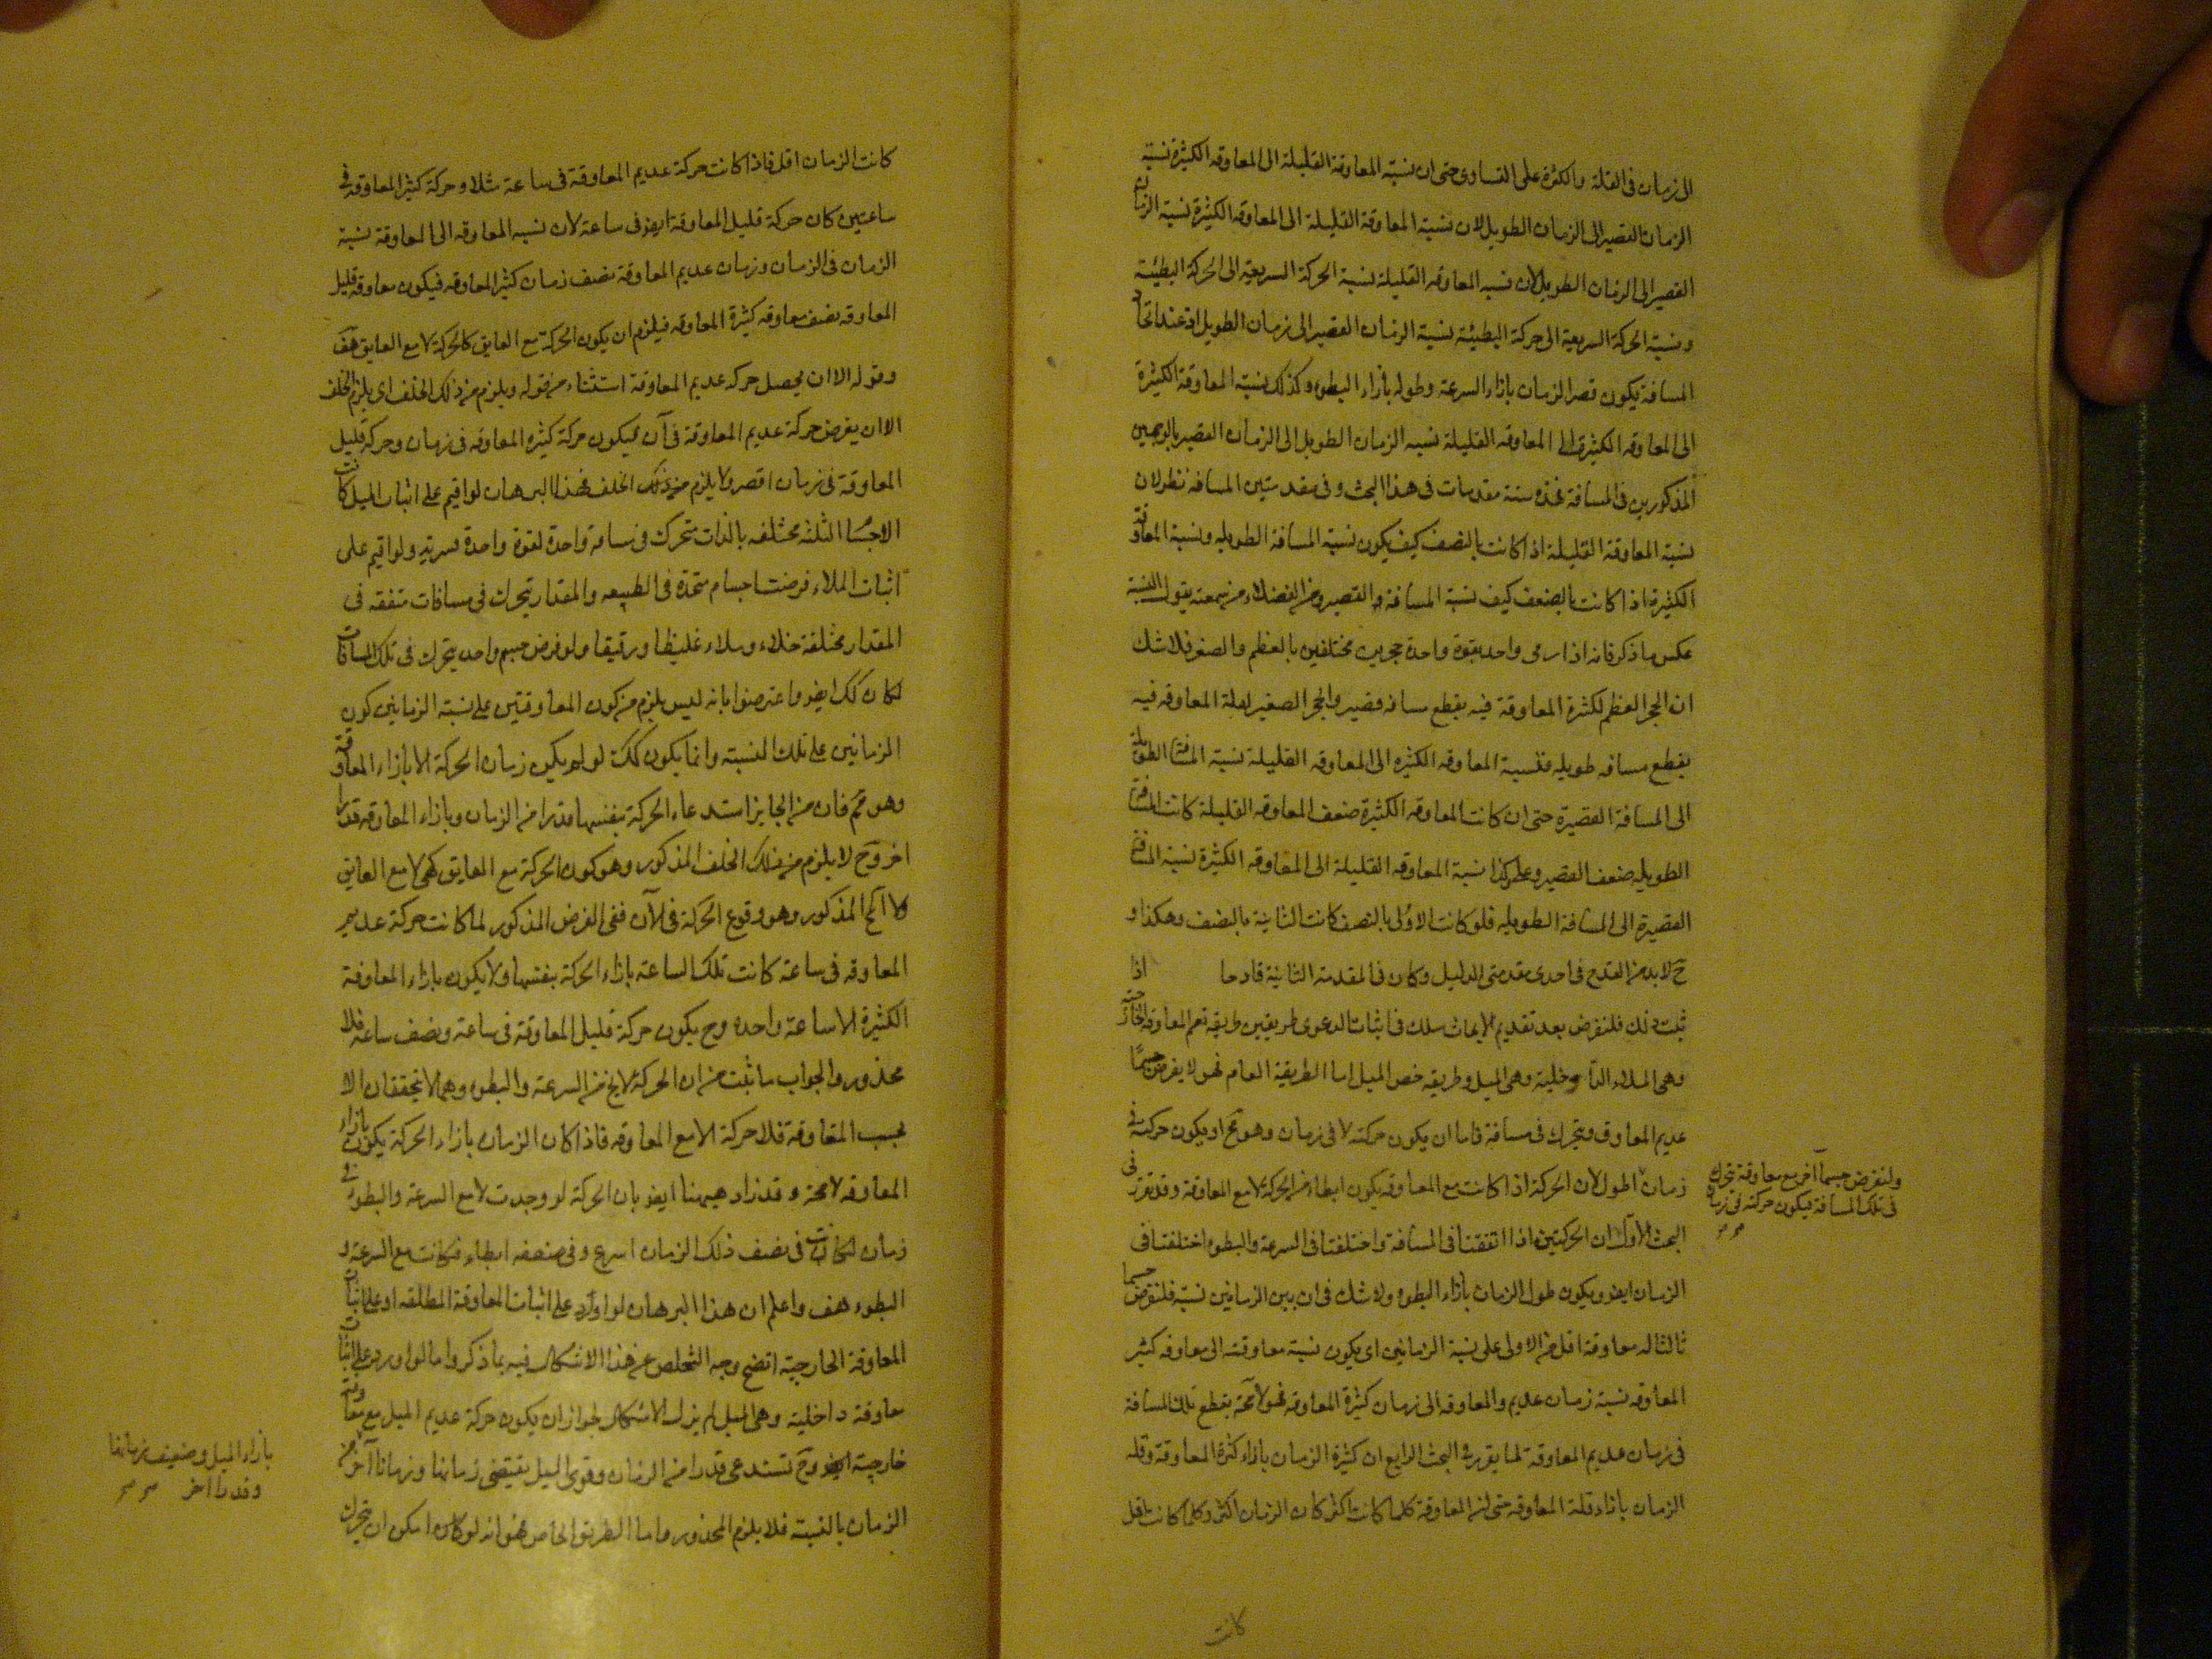 الى زمان فى القلة والكثرة على التساوى حتى ان نسبة المعاوقة القليلة الى المعاوقه الكثيرة نسبة
الزمان القصير الى الزمان الطويل لان نسبة المعاوقة القليلة الى المعاوقه الكثيرة نسبة الزمان
القصير الى الزمان الطويل لان نسبه المعاوقه القليلة نسبة الحركة السريعة الى الحركة البطيئة
ونسبة الحركة السريعة الى حركة البطيئة نسبة الزمان القصير الى زمان الطويل اذ عند اتحاد
المسافة يكون قصر الزمان بازاء السرعة وطوله بازاء البطوء وكذلك نسبة المعاوقة الكثيرة
الى المعاوقه الكثيرة الى المعاوقه القليلة نسبه الزمان الطويل الى الزمان القصير بالوجهين
المذكورين فى المسافة فهذه ستة مقدمات فى هذا البحث وفى مقدمتين المسافه نظر لان
نسبة المعاوقة القليلة اذا كانت بالنصف كيف يكون نسبة المسافة الطويله ونسبة المعاوقة
الكثيرة اذا كانت بالضعف كيف نسبة المسافة القصير ومن الفضلاء من سمعته يقول النسبة
عكس ما ذكر فانه اذا رمى واحد بقوة واحدة حجرين مختلفين بالعظم والصغر فلا شك
ان الحجر العظم لكثرة المعاوقة فيه يقطع مسافه قصير والحجر الصغير لقلة المعاوقه فيه
يقطع مسافه طويله فنسبة المعاوقه الكثيره الى المعاوقه القليلة نسبة المسافة الطويلة
الى المسافة القصيرة حتى ان كانت المعاوقه الكثيرة ضعف المعاوقه القليلة كانت المسافة
الطويله ضعف القصير وعلى هكذا نسبة المعاوقه القليلة الى المعاوقه الكثيرة نسبة المسافة
القصيرة الى المسافة الطويله فلو كانت الاولى بالنصف كانت الثانية بالنصف وهكذا و
ح لا بد من القدح فى احدى مقدمتى الدليل وكان فى المقدمة الثانية قادحا اذا
ثبت ذلك فلنفرض بعد تقديم الابحاث سلك فى اثبات الدعوى طريقين طريقه تعم المعاوقة الخارجية
وهى الملاء وداخلية وهى الميل وطريقه خص الميل اما الطريقة العام فهو لا يفرض جسمًا
عديم المعاوق ويتحرك فى مسافة فاما ان يكون حركته لا فى زمان وهو مح او يكون حركته فى
زمان اطول لان الحركة اذا كانت مع المعاوقه يكون ابطاء من الحركة لا مع المعاوقة وقد تقرر فى
ولنفرض جسماً آخر مع معاوقة يتحرك
فى تلك المسافة فيكون حركته فى زمان
صح صح
البحث الاول ان الحركتين اذا اتفقتا فى المسافة واختلفتا فى السرعة والبطوء اختلفتا فى
الزمان ايضو ويكون طول الزمان بازاء البطوء ولا شك فى ان بين الزمانين نسبة فلنفرض جسما
ثالثا له معاوقة اقل من الاولى على نسبة الزمانين اى يكون نسبة معاوقته الى معاوقه كثير
المعاوقه نسبة زمان عديم المعاوقه الى زمان كثيرة المعاوقه فهو لا محة يقطع تلك المسافة
فى زمان عديم المعاوقة لما تقرر فى البحث الرابع ان كثيرة الزمان بازاء كثرة المعاوقة وقلة
الزمان بازاء قلة المعاوقه حتى ان المعاوقة كلما كانت اكثر كان الزمان اكثر وكلما كانت اقل
كانت
كانت الزمان اقل فاذا كانت حركة عديم المعاوقة فى ساعة مثلا وحركة كثير المعاوقه فى
ساعتين كان حركة قليل المعاوقة ايضو فى ساعة لان نسبه المعاوقه الى المعاوقة نسبة
الزمان فى الزمان وزمان عديم المعاوقة نصف زمان كثير المعاوقه فيكون معاوقة قليل
المعاوقه نصف معاوقه كثيرة المعاوقه فيلزم ان يكون الحركة مع العايق كالحركة لا مع العايق هف
وقوله الا ان يحصل حركه عديم المعاوقة استثناء من قوله ويلزم من ذلك الخلف اى يلزم الخلف
الا ان يفرض حركة عديم المعاوقة فى آن فيكون حركة كثيره المعاوقه فى زمان وحركة قليل
المعاوقة فى زمان اقصر ولا يلزم من ذلك الخلف فهذا البرهان لو اقيم على اثبات الميل كانت
الاجسام الثلثة مختلفه بالذات تتحرك فى مسافة واحدة لقوة واحدة قسرية ولو اقيم على
اثبات الملاء فرضت اجسام متحدة فى الطبيعه والمقدار يتحرك فى مسافات متفقه فى
المقدار مختلفة خلاء وملاء غليظا ورقيقا ولو فرض جسم واحد يتحرك فى تلك المسافات
لكان كك ايضو واعترضوا بانه ليس يلزم من كون المعاوقتين على نسبة الزمانين كون
الزمانين على تلك النسبة وانما يكون كك لو لم يكن زمان الحركة الا بازاء المعاوقة
وهو مم فان من الجايز استدعاء الحركة بنفسها قدرا من الزمان وبازاء المعاوقه قدرا
اخر وح لا يلزم من ذلك الخلف المذكور وهو كون الحركة مع العايق كهى لا مع العايق
المذكور وهو وقوع الحركة فى الآن ففى الفرض المذكور لما كانت حركة عديم
المعاوقه فى ساعة كانت تلك الساعة بازاء الحركة بنفسها ولا يكون بازاء المعاوقة
الكثيرة الا ساعة واحده وح يكون حركة قليل المعاوقة فى ساعة ونصف ساعة فلا
محذور والجواب ما ثبت من ان الحركة لا يخ من السرعة والبطوء وهما لا يتحققان الا
بحسب المعاوقة فلا حركة الا مع المعاوقه فاذا كان الزمان بازاء الحركة يكون بازاء
المعاوقه لا محة وقد زاد هيهنا ايضو بان الحركة لو وجدت لا مع السرعة والبطوء فى
زمان لكانت فى نصف ذلك الزمان اسرع وفى ضعفه ابطاء فكانت مع السرعة و
البطوء هف واعلم ان هذا البرهان لو اورد على اثبات المعاوقة المطلقه او على اثبات
المعاوقة الخارجية اتضح وجه التخلص عن هذا الاشكال فيه بما ذكر واما لو اورد على اثبات
معاوقة داخلية وهى الميل لم يزل الاشكال لجواز ان يكون حركة عديم الميل مع معاوقة
خارجية ايضو وح تستدعى قدرا من الزمان وقوى الميل يقتضى زمانا وزمانا آخر
بازاء الميل وضعيف زمانا
وقدرا اخر صح صح
الزمان بالنسبة فلا يلزم المحذور واما الطريق الخاص فهو انه لو كان امكن ان يتحرك